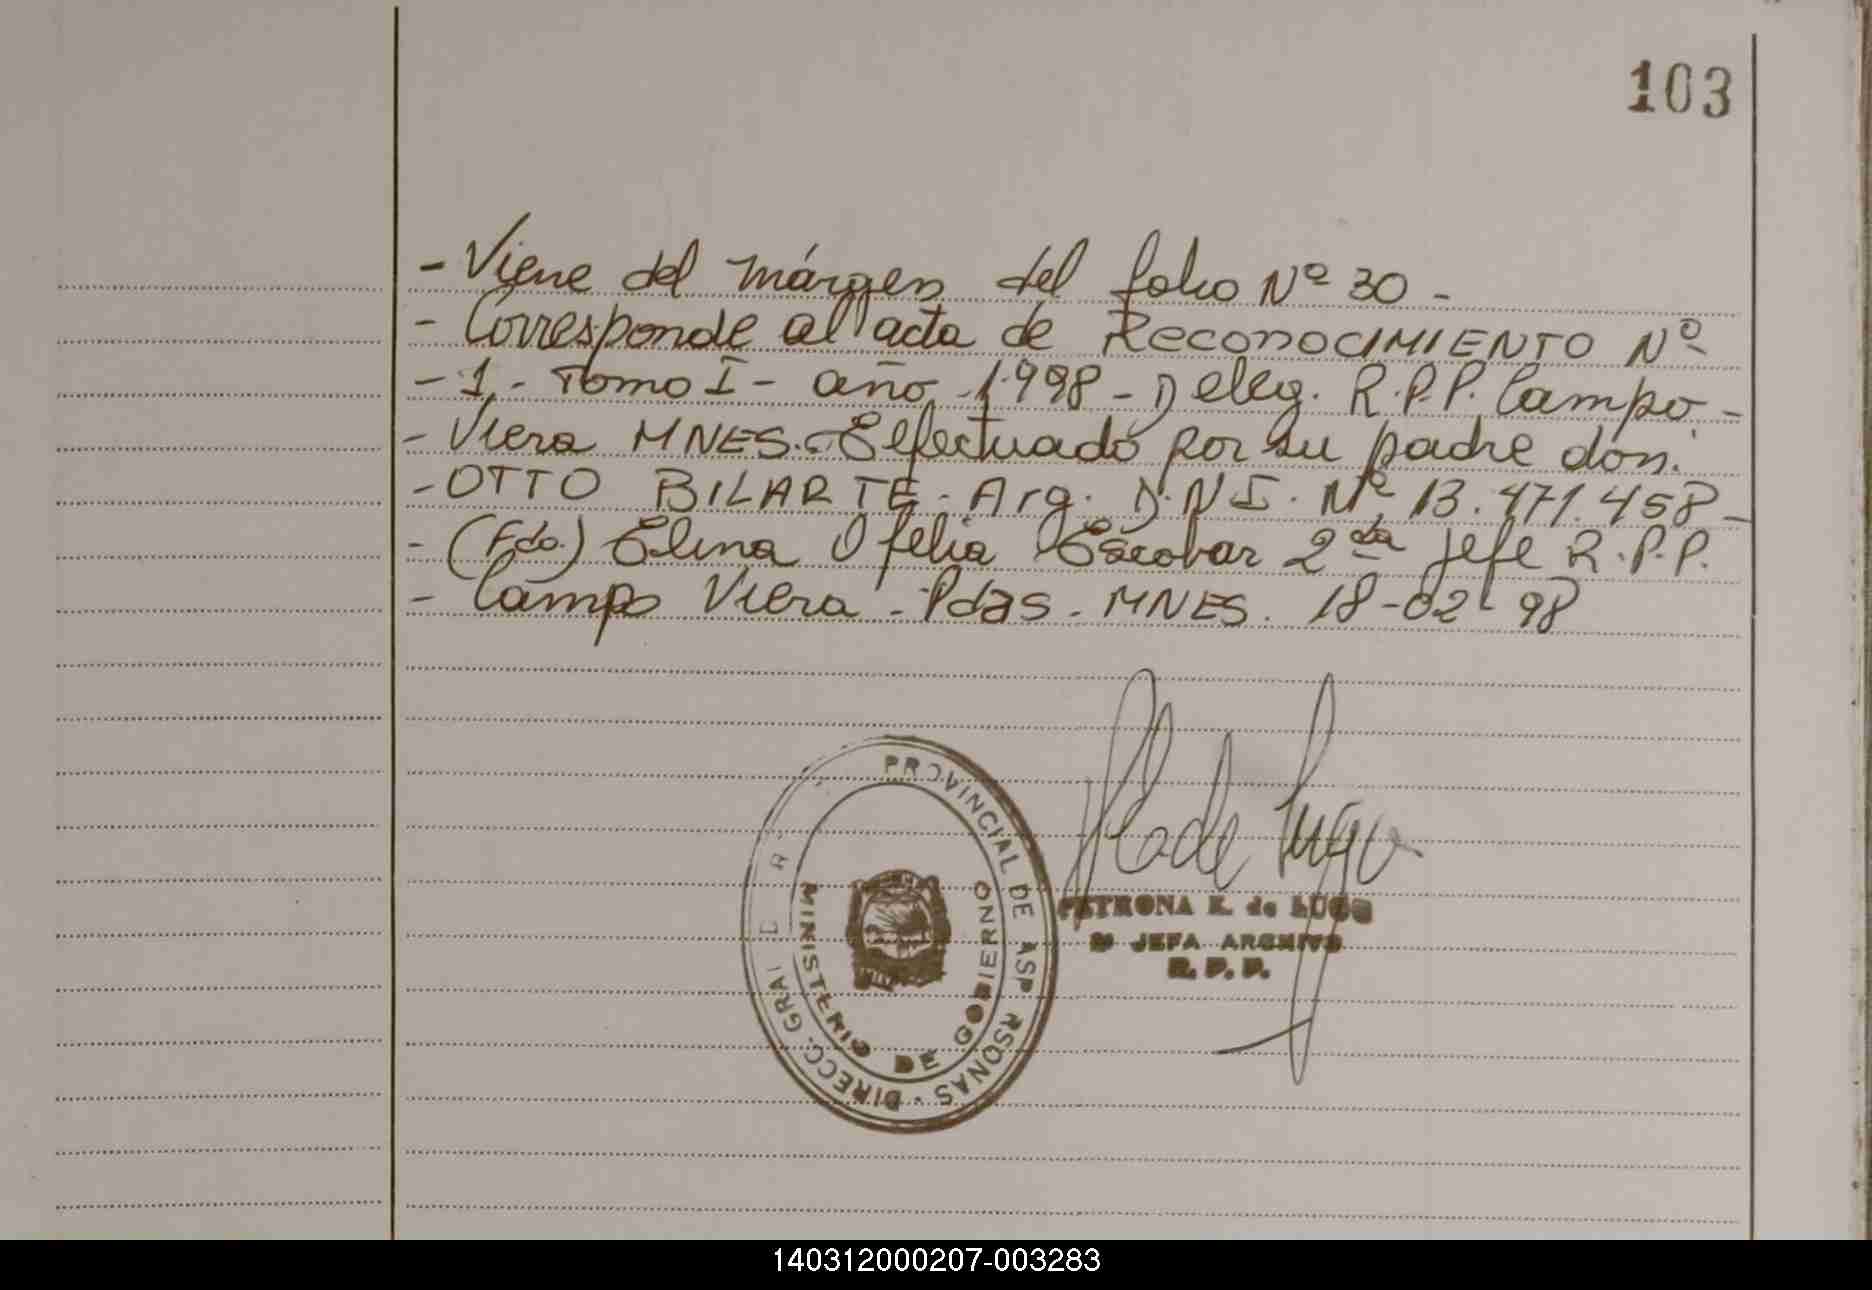 103
- Viene del márgen del folio Nº 30 -
- Corresponde al acta de RECONOCIMIENTO Nº
- 1 - Tomo I - año 1.998 - Deleg. R.P.P. Campo -
- Viera MNES. Efectuado por su padre don.
- OTTO BILARTE. Arg. D.N.I. Nº 13.471.458 -
- (Fdo.) Elina Ofelia Escobar 2da jefe R.P.P.
- Campo Viera - Pdas - MNES. 18-02-98
PROVINCIAL DE
RSONAS - DIRECC. GRAL
MINISTERIO DE GOBIERNO
de Lugo
PETRONA K. de LUGO
JEFA ARCHIVO
R. P. P.
140312000207-003283